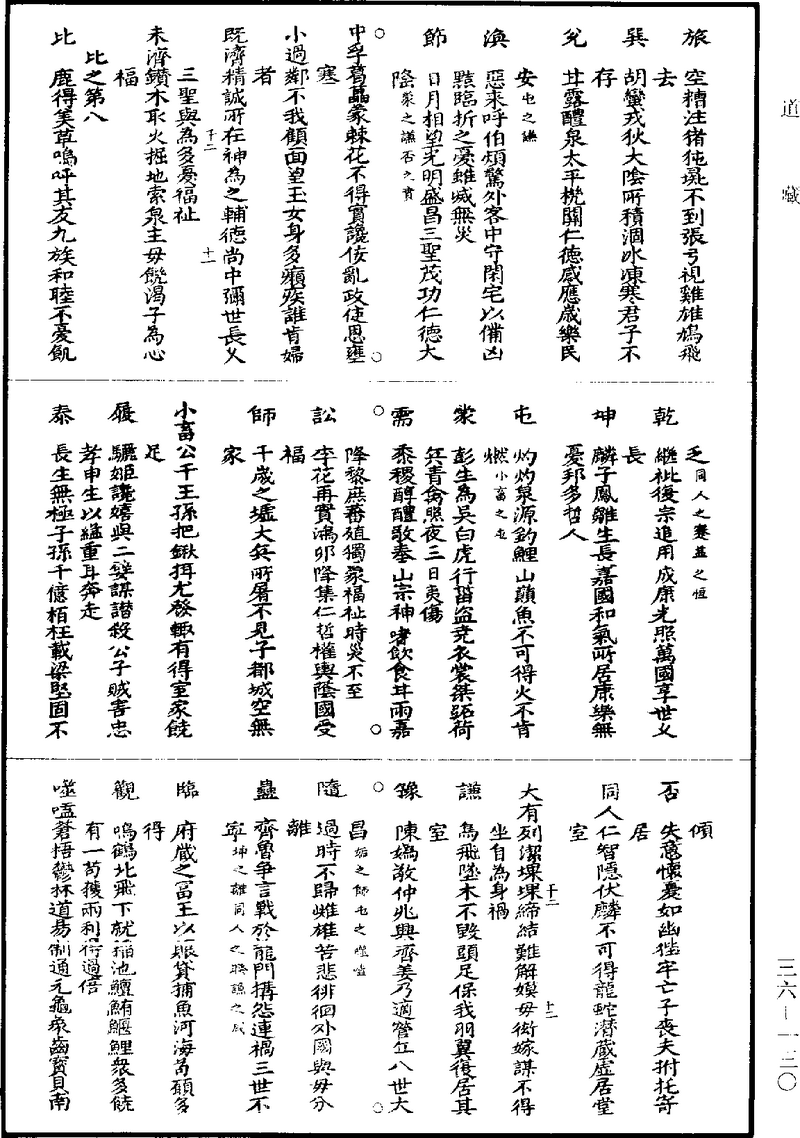 道藏
旅 空槽注猪㹠彘不到張弓視雞雄鳩飛
去
巽 胡蠻戎狄大陰所積涸冰凍寒君子不
存
兌 甘露醴泉太平機關仁德感應歲樂民
安屯之謙
渙 惡來呼伯頻驚外客中守閑宅以備凶
黙臨折之憂雖滅無災
節 日月相望光明盛昌三聖茂功仁德大
隆蒙之謙否之賁
中孚葛藟蒙棘花不得實讒佞亂政使恩壅
塞
小過鄰不我顧面望玉女身多癩疾誰肯婦
者
既濟精誠所在神為之輔德尚中彌世長久
三聖與為多憂福祉
十二 十一
未濟鑽木取火掘地索泉主母饒渴子為心
福
比之第八
比 鹿得美草鳴呼其友九族和睦不憂飢
乏同人之蹇益之恒
乾 繼祉復宗追用成康光照萬國享世久
長
坤 麟子鳳雛生長嘉國和氣所居康樂無
憂邦多哲人
屯 灼灼泉源釣鯉山巔魚不可得火不肯
燃小畜之屯
蒙 彭生為吳白虎行菑盜堯衣裳桀跖荷
兵青禽照夜三日夷傷
需 黍稷醇醴敬奉山宗神嗜飲食甘雨嘉
降黎庶蕃殖獨蒙福祉時災不至
訟 李花再實鴻卵降集仁哲權輿蔭國受
福
師 千歲之墟大兵所屠不見子都城空無
家
小畜公子王孫把鍬挕九發輙有得室家饒
足
履 驪姬讒嬉與二嬖謀譖殺公子賊害忠
孝申生以縊重耳奔走
泰 長生無極子孫千億栢柱載梁堅固不
傾
否 失意懷憂如幽狴牢亡子喪夫拊托寄
居
同人仁智隱伏麟不可得龍蛇潛藏虛居堂
室
大有列潔堁堁締結難解嫫母衒嫁謀不得
坐自為身禍
十二 十二
謙 鳥飛墜木不毀頭足保我羽翼復居其
室
豫 陳媯敬仲兆興齊姜乃適營丘八世大
昌姤之師屯之噬嗑
隨 過時不歸雌雄苦悲徘徊外國與母分
離
蠱 齊魯爭言戰於龍門搆怨連禍三世不
寧坤之離同人之睽謙之咸
臨 府藏之冨王以賑貸捕魚河海笱碩多
得
觀 鳴鶴北飛下就稻池鱣鮪鰋鯉衆多饒
有一笱獲兩利得過倍
噬嗑蒼梧鬱林道易制通元龜象齒寳貝南
三六-一三〇